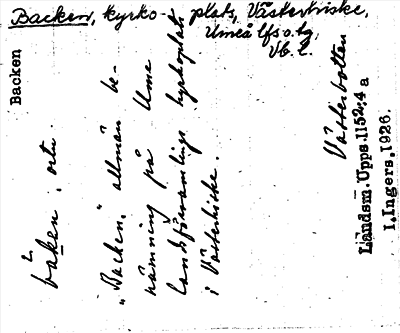 Backen, kyrko- plats, Västerhiske,
Umeå lfs o. tg.
Vb. l.
Backen
båken, ortn.
"Backen," allmän be-
nämning på Umeå
landsförsamlings kyrkoplats
i Västerhiske.
Västerbotten
Landsm. Upps. 1152:4 a
I. Ingers, 1926.